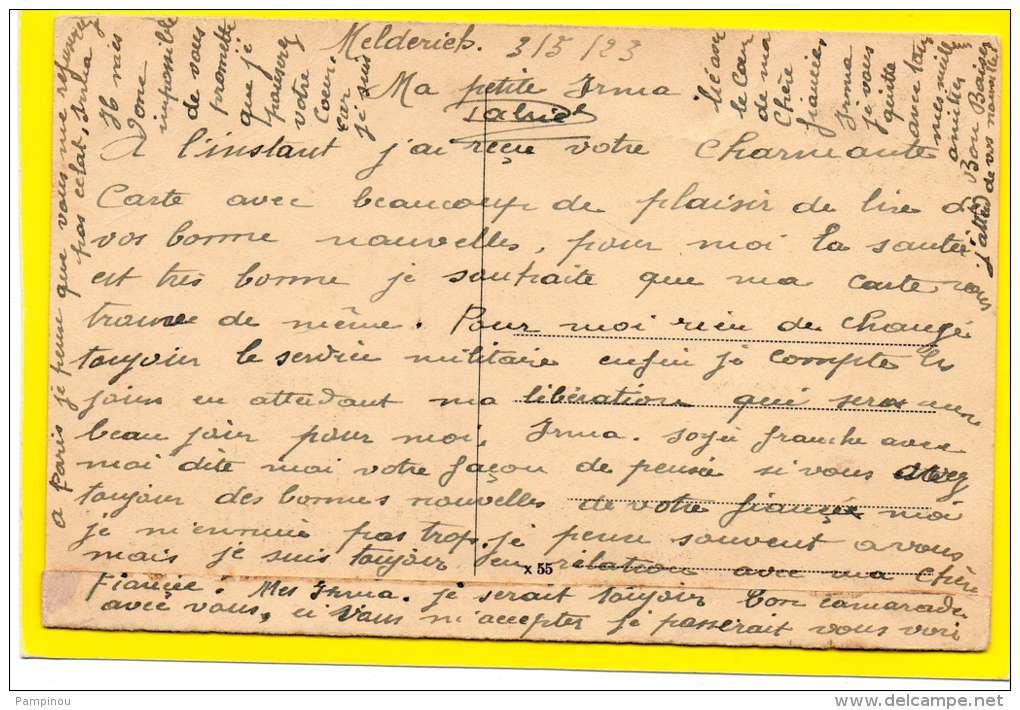 Melderich. 3/5/23
Ma petite Irma
A l'instant j'ai reçu votre charmante
Carte avec beaucoup de plaisir de lire de
vos bonne nouvelles, pour moi la santé
est très bonne je souhaite que ma carte vous
trouve de même. Pour moi rien de changé
toujour le service militaire enfin je compte les
jours en attendant ma libération qui sera un
beau jour pour moi. Irma. soyé franche avec
moi dite moi votre façon de pensée si vous avez
toujour des bonnes nouvelles de votre fiancée moi
je m'ennuie pas trop. je pense souvent a vous
mais je suis toujour en relation avec ma chère
Fiancée. Mes Irma. je serait toujour bon camarade
avec vous, si vous m'accepter je passerait vous voir
a Paris je pense que vous me refuserez
pas celat, Irma
Donc
impossible
de vous
promettre
que je
votre
Cour,
car
je suis
lié avec
le Cœur
de ma
Chère
fiancée,
Irma
je vous
quitte
avec tout
mes mille
amitiés
Bon Baiser
J'attend de vos nouvelles
x 55
Pampinou
delcampe.net